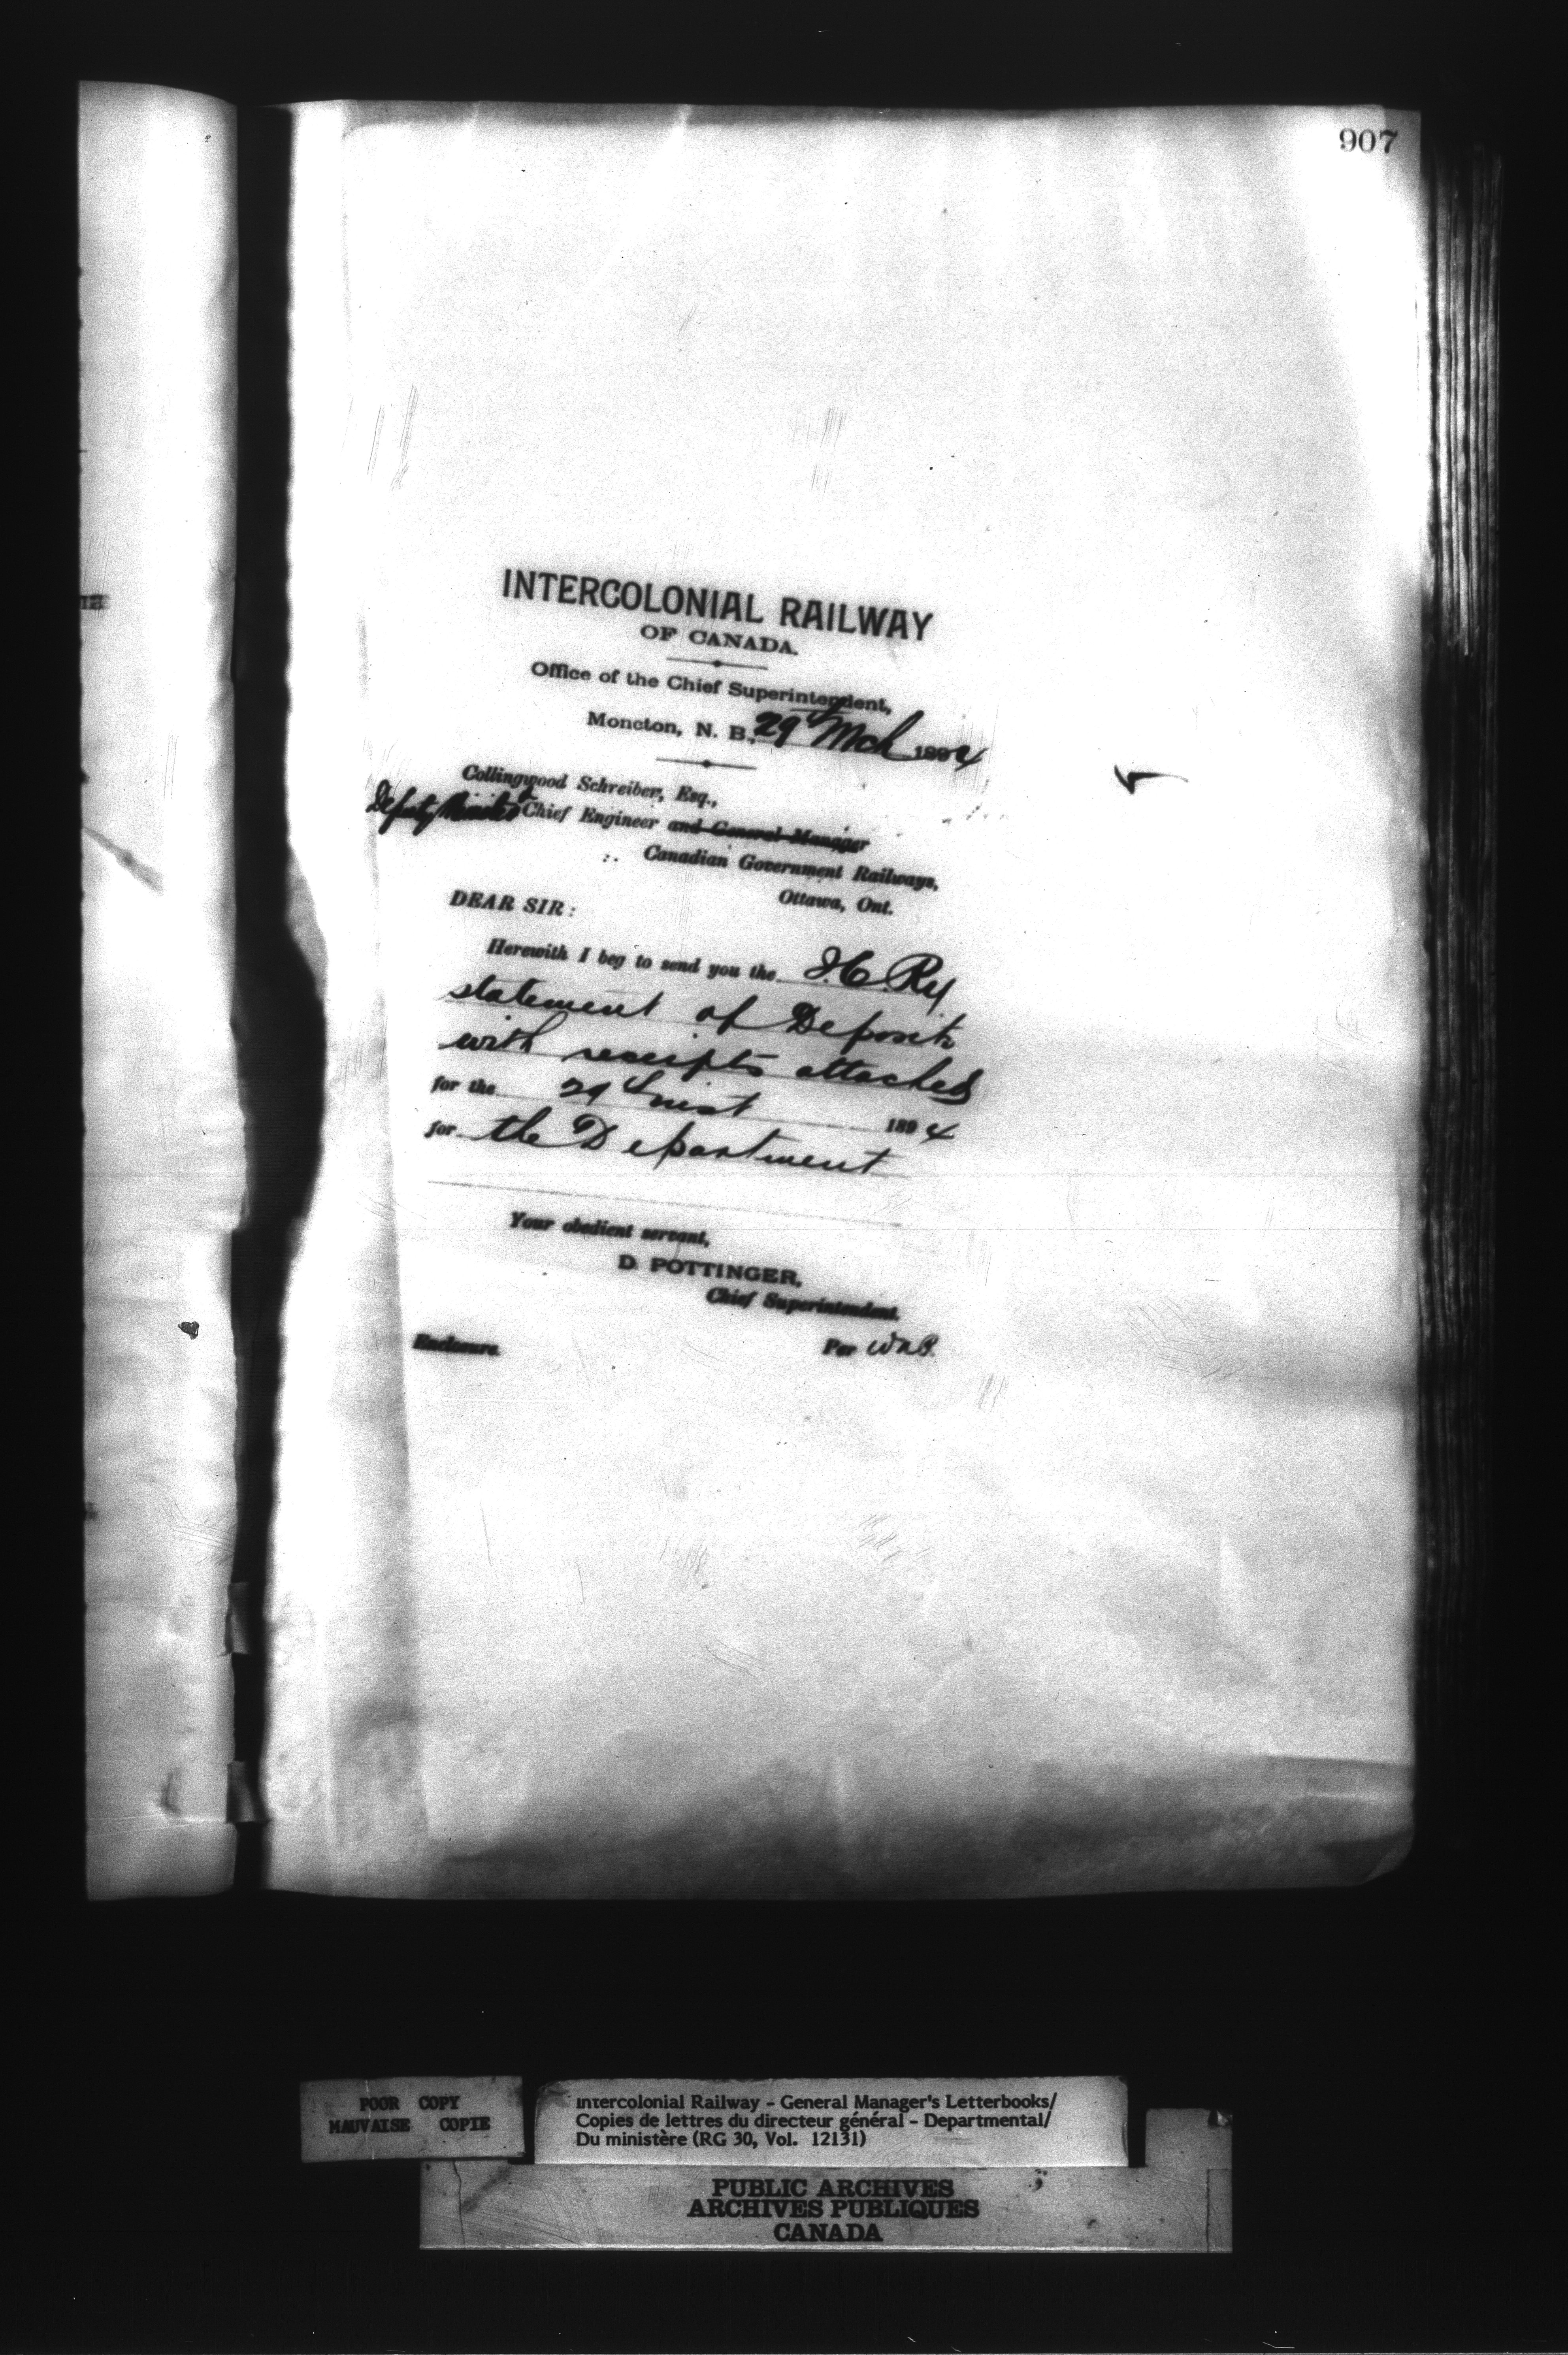 907
INTERCOLONIAL RAILWAY
OF CANADA.
Office of the Chief Superintendent,
Moncton, N. B., 29th Mch 1894
Collingwood Schreiber, Esq.,
Deputy Minister & Chief Engineer and General Manager
Canadian Government Railways,
Ottawa, Ont.
DEAR SIR:
Herewith I beg to send you the I.C.Ry
statement of Deposits
with receipts attached
for the 29th inst 1894
for the Department
Your obedient servant,
D. POTTINGER,
Chief Superintendent.
Enclosure. Per
POOR COPY
MAUVAISE COPIE
Intercolonial Railway - General Manager's Letterbooks/
Copies de lettres du directeur général - Departmental/
Du ministère (RG 30, Vol. 12131)
PUBLIC ARCHIVES
ARCHIVES PUBLIQUES
CANADA